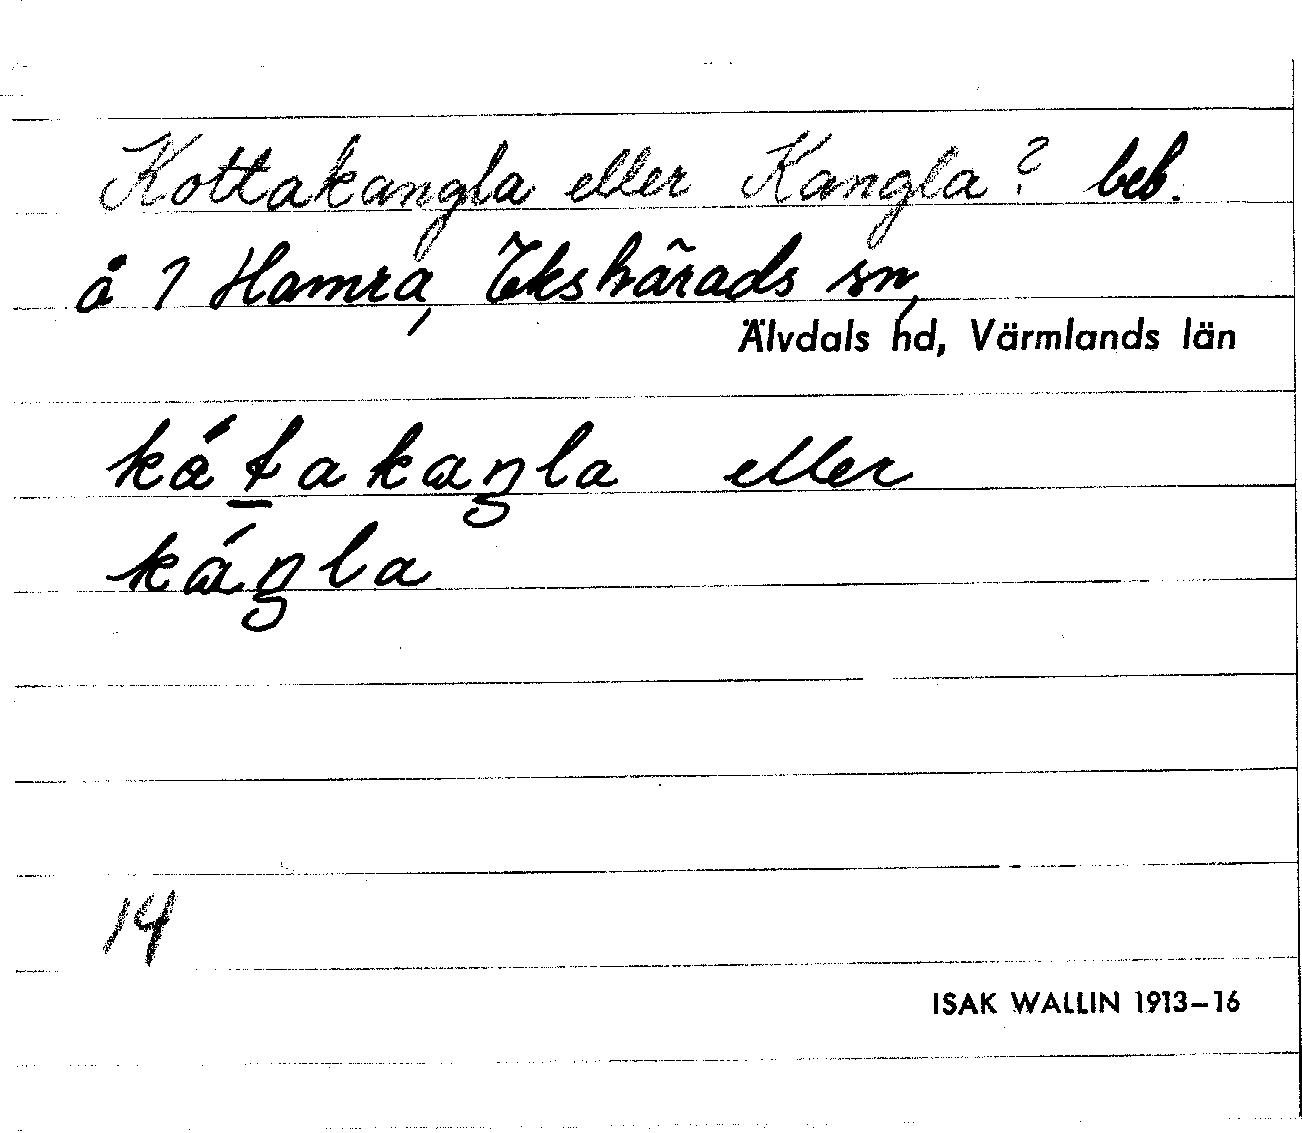 Kottakangla eller Kangla? beb.
å 1 Hamra, Ekshärads sn,
Älvdals hd, Värmlands län
kåt̲akaŋla eller
káŋla
14
ISAK WALLIN 1913–16